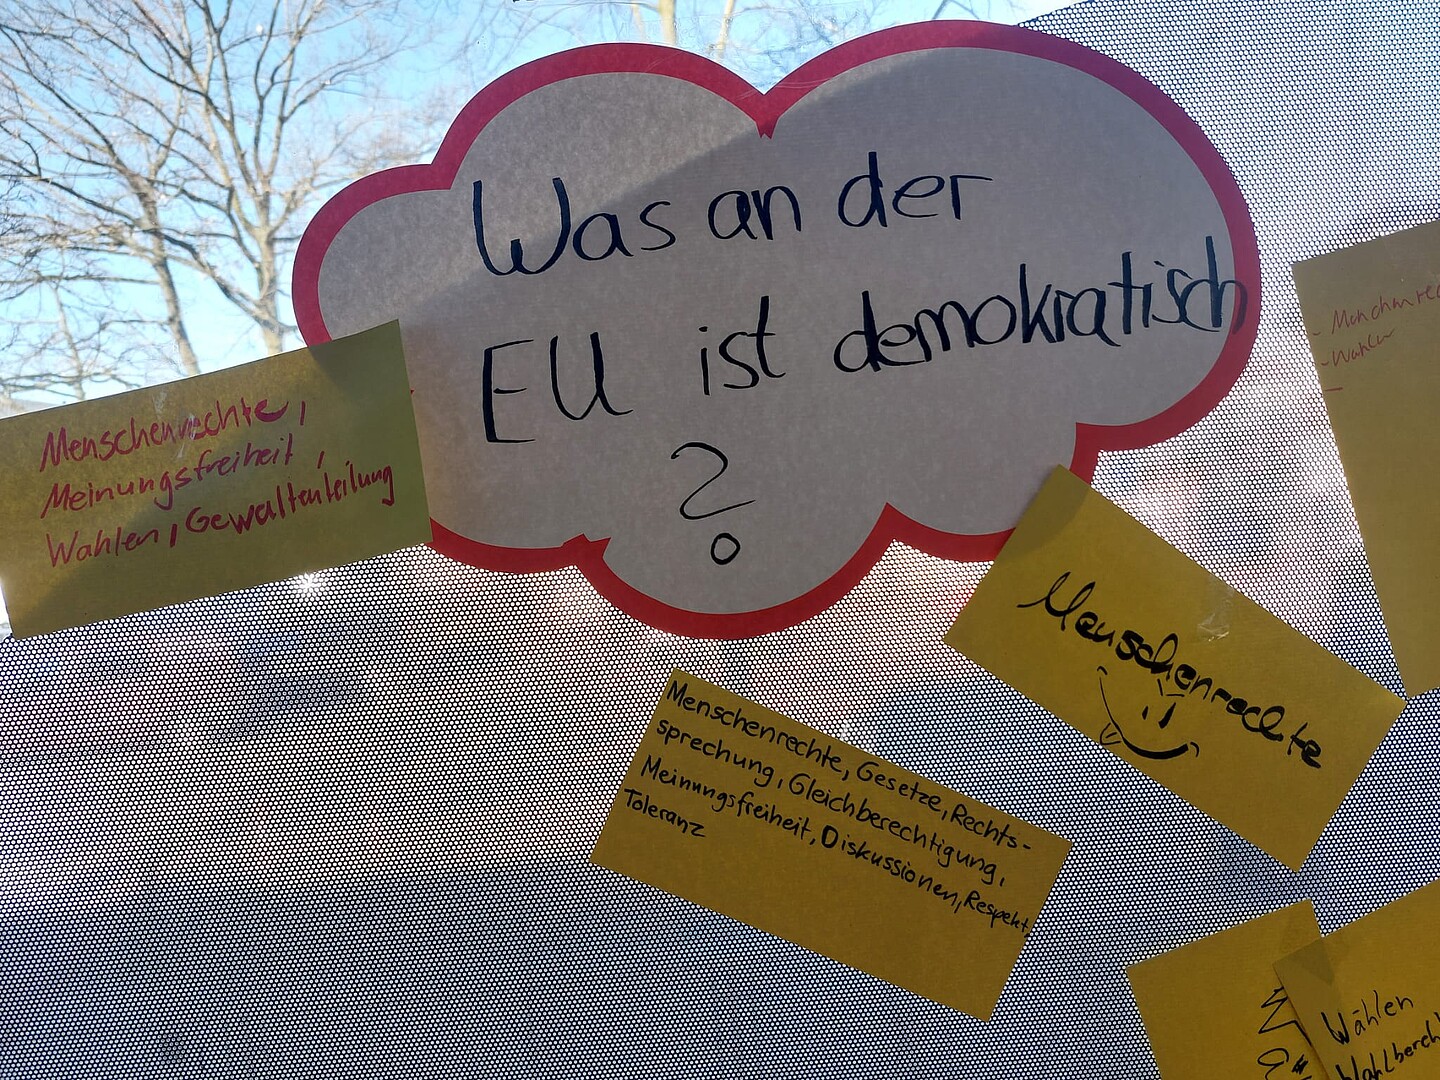 Was an der
EU ist demokratisch
?
Menschenrechte,
Meinungsfreiheit,
Wahlen, Gewaltenteilung
- Wahlen
-
Menschenrechte
Menschenrechte, Gesetze, Rechts-
sprechung, Gleichberechtigung,
Meinungsfreiheit, Diskussionen, Respekt,
Toleranz
Wählen